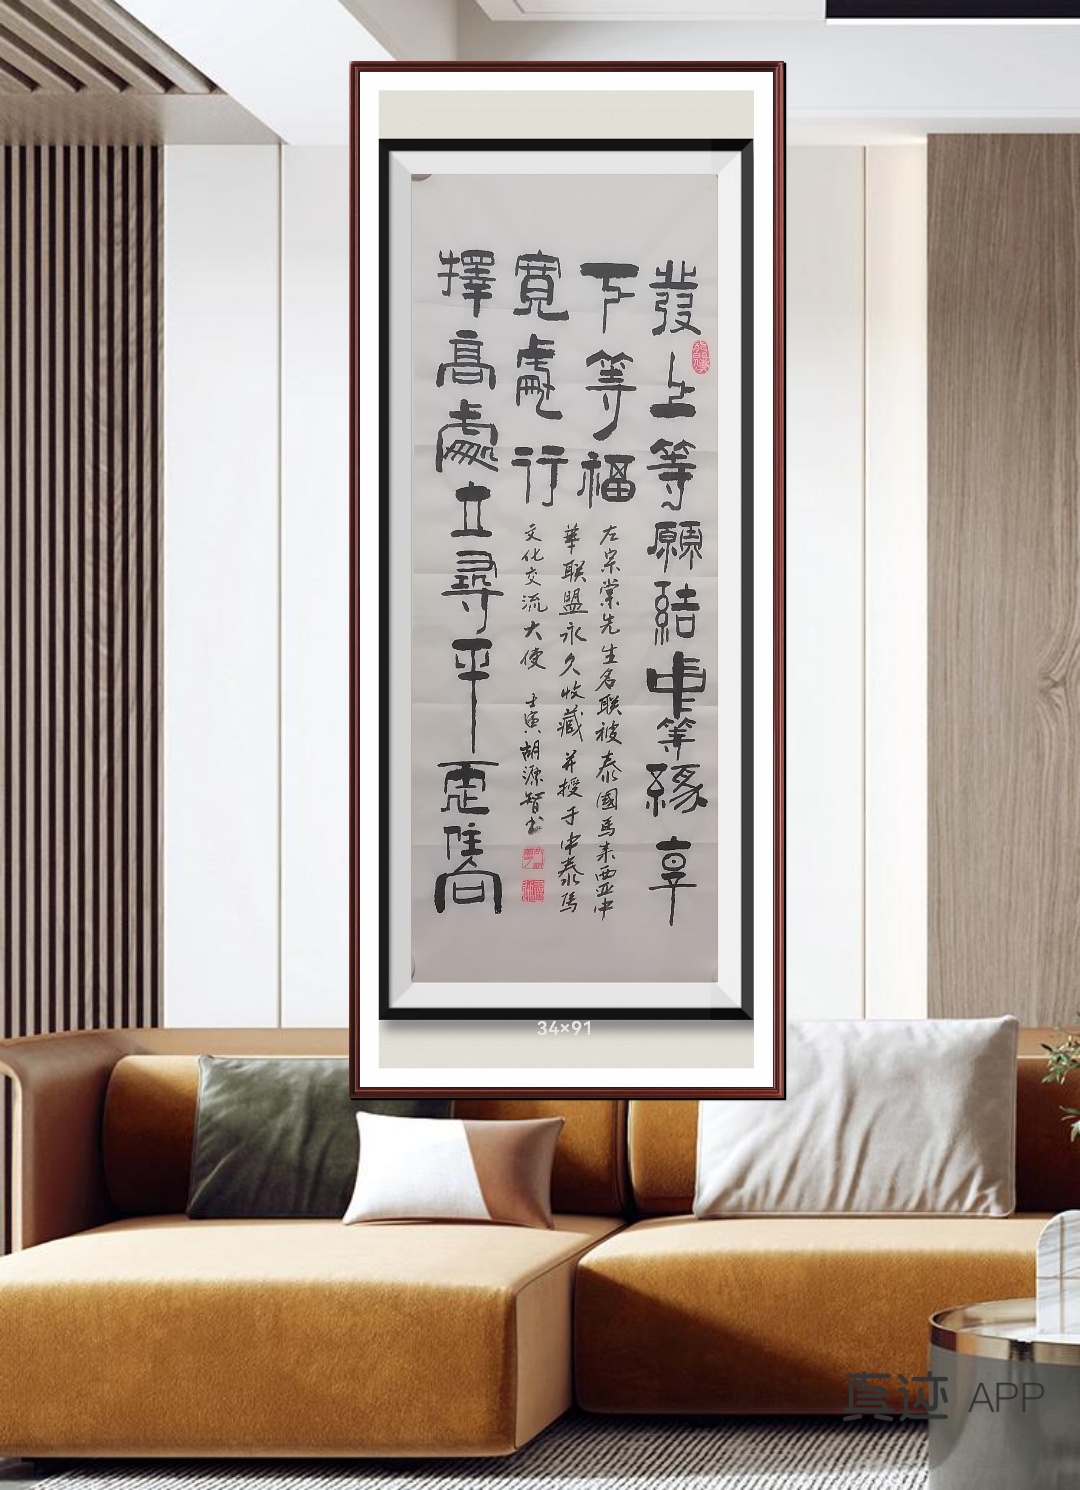 發上等願結中等緣享
下等福
擇高處立尋平處住向
寬處行
左宗棠先生名联被泰國馬来西亞中
華联盟永久收藏并授于中泰馬
文化交流大使 壬寅胡源智书
34×91
真迹 APP